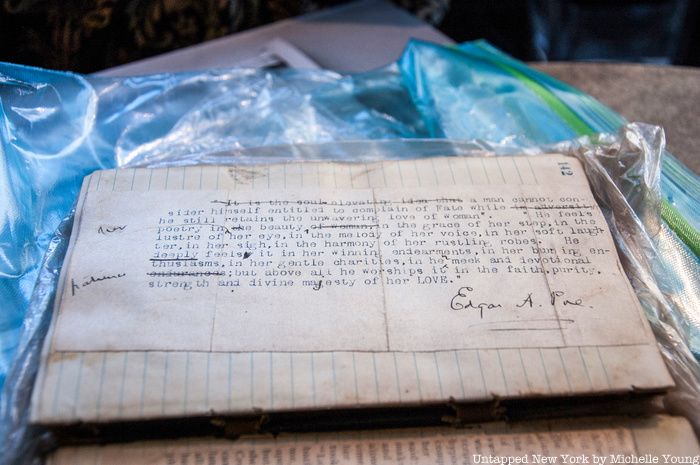 142
It is the soul elevating idea that a man cannot con-
sider himself entitled to complain of Fate while in adversity
he still retains the unwavering love of woman". "He feels
poetry in the beauty, of woman, in the grace of her step, in the
her
lustre of her eye, in the melody of her voice, in her soft laugh
ter, in her sigh, in the harmony of her rustling robes. He
deeply feels it in her winning endearments, in her burning en-
thusiasms, in her gentle charities, in he meek and devotional
patience
endurance; but above all he worships it in the faith, purity,
strength and divine majesty of her LOVE."
Edgar A. Poe.
Untapped New York by Michelle Young